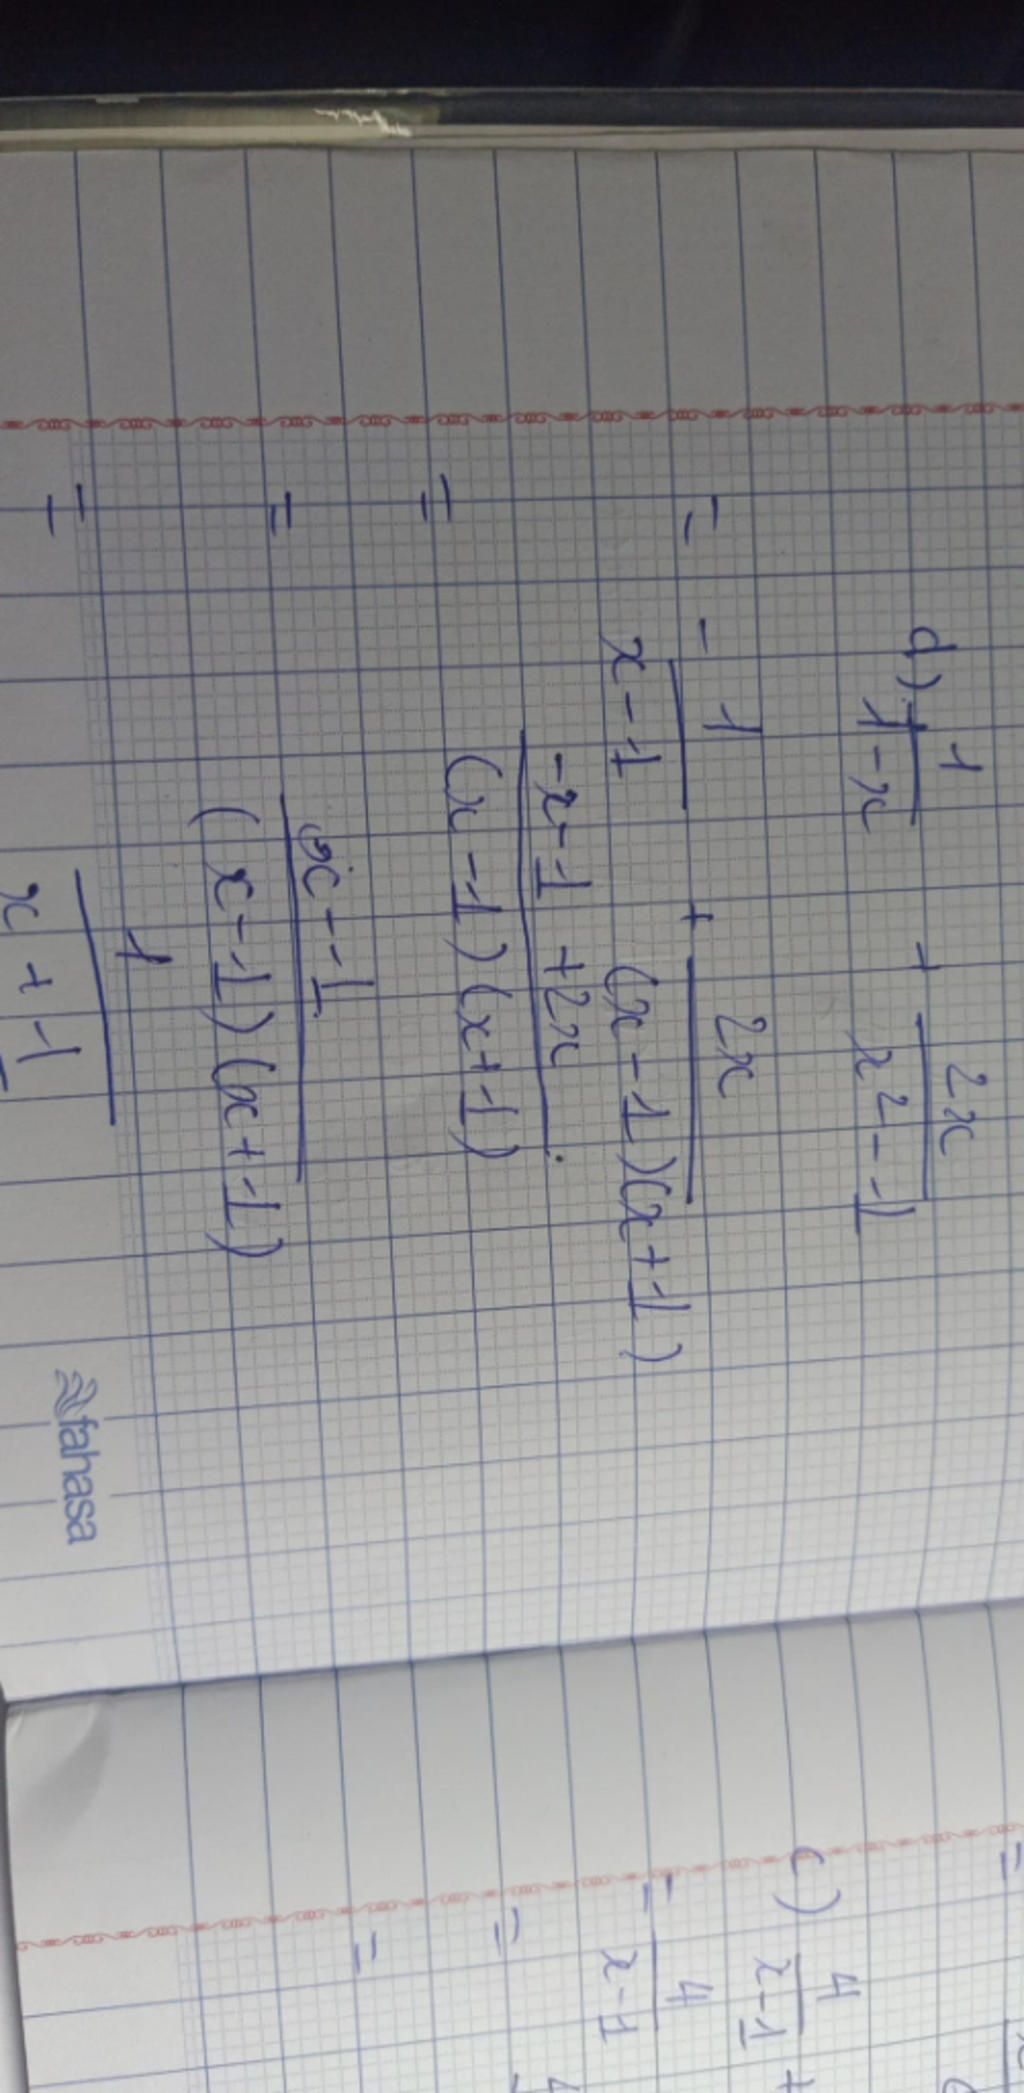 d) 1/(1-x) + 2x/(x²-1)
= -1/(x-1) + 2x/((x-1)(x+1))
= (-x-1+2x)/((x-1)(x+1))
= (x-1)/((x-1)(x+1))
= 1/(x+1)
fahasa
=
c) 4/(x-1) +
= 4/(x-1)
=
=